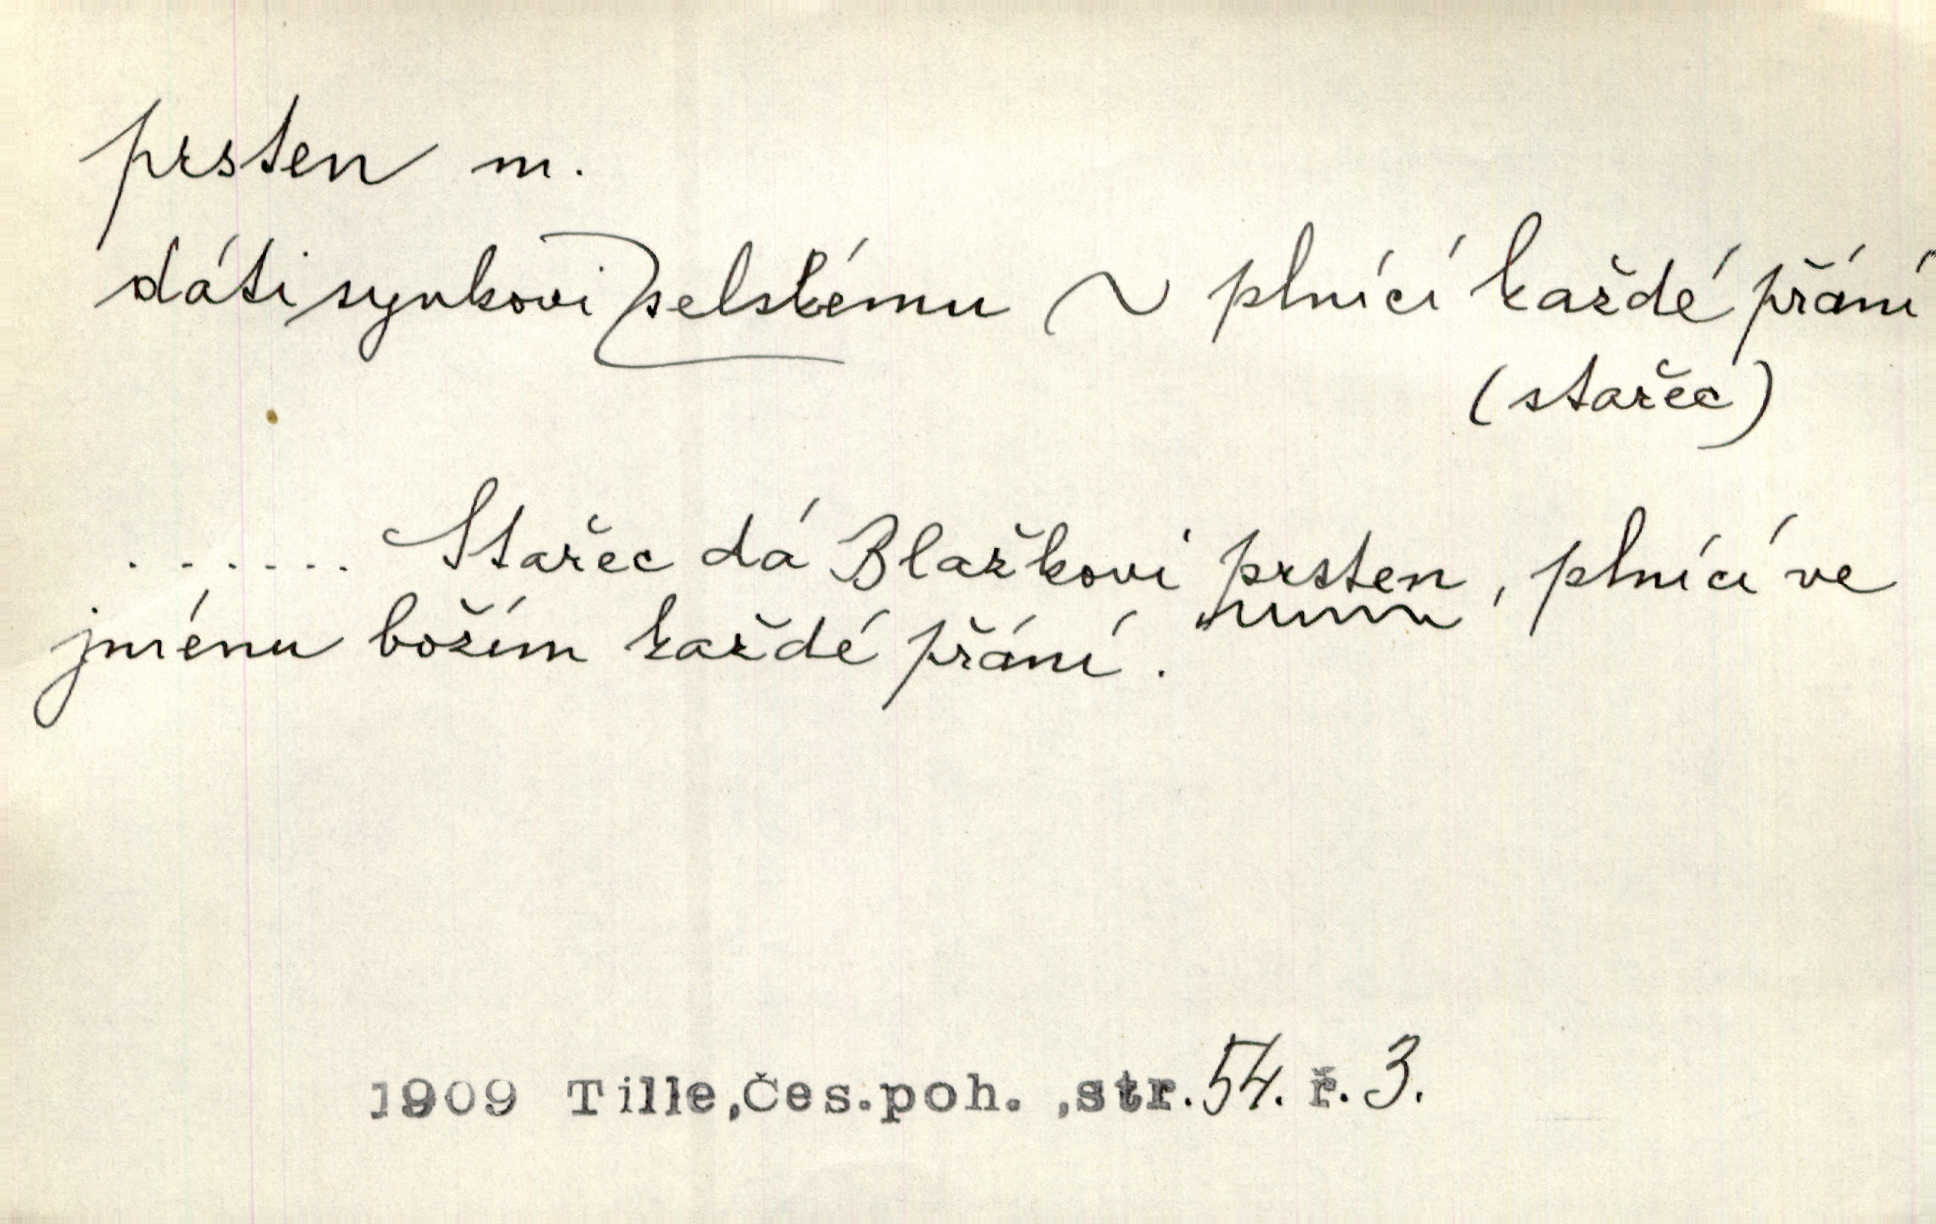 prsten m.
dáti synkovi selskému ~ plnící každé přání
(stařec)
....... Stařec dá Blažkovi prsten, plnící ve
jménu božím každé přání.
1909 Tille,Čes.poh. ,str.54. ř.3.